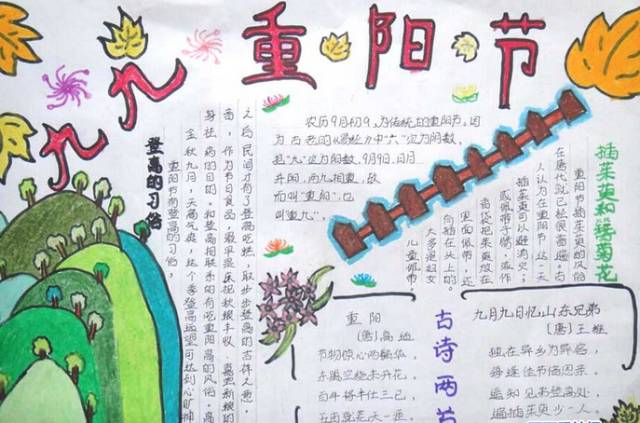 九九重阳节
农历9月初9,为传统的重阳节。因
为古老的《易经》中"六"定为阴数,
把"九"定为阳数,9月9日,日月
并阳,两九相重,故
而叫"重阳",也
叫"重九"。
登高的习俗
重阳节有登高的习俗,
金秋九月,天高气爽,这个季登高远望可达到心旷神
身祛病的目的。和登高相联系的有吃重阳高的风俗。高
面,作为节日食品,最早是庆祝秋粮丰收、喜尝新粮的
之后民间才有了登高吃糕,取步步登高的吉祥之意。
插茱萸和簪菊花
重阳节插茱萸的风俗
在唐代就已经很普遍。古
人认为在重阳节这一天
插茱萸可以避消灾;
或佩带于臂,或作
香袋把茱萸放在
里面佩带,还
插在头上的。
大多是妇女
儿童佩带,
重阳
(唐)高
古诗两
九月九日忆山东兄弟
(唐)王维
独在异乡为异客,
每逢佳节倍思亲。
遥知兄弟登高处,
遍插茱萸少一人。